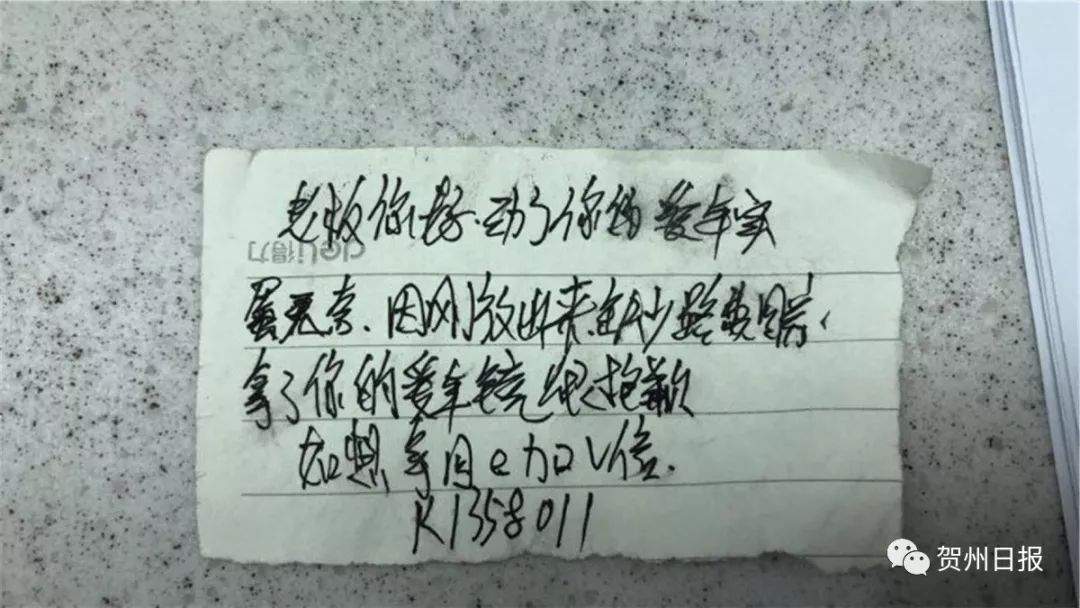 老板你好.动了你的爱车实
deli得力
属无奈.因刚放出来缺少路费
拿了你的爱车 很抱歉
如想 回e加V信.
K1358011
贺州日报